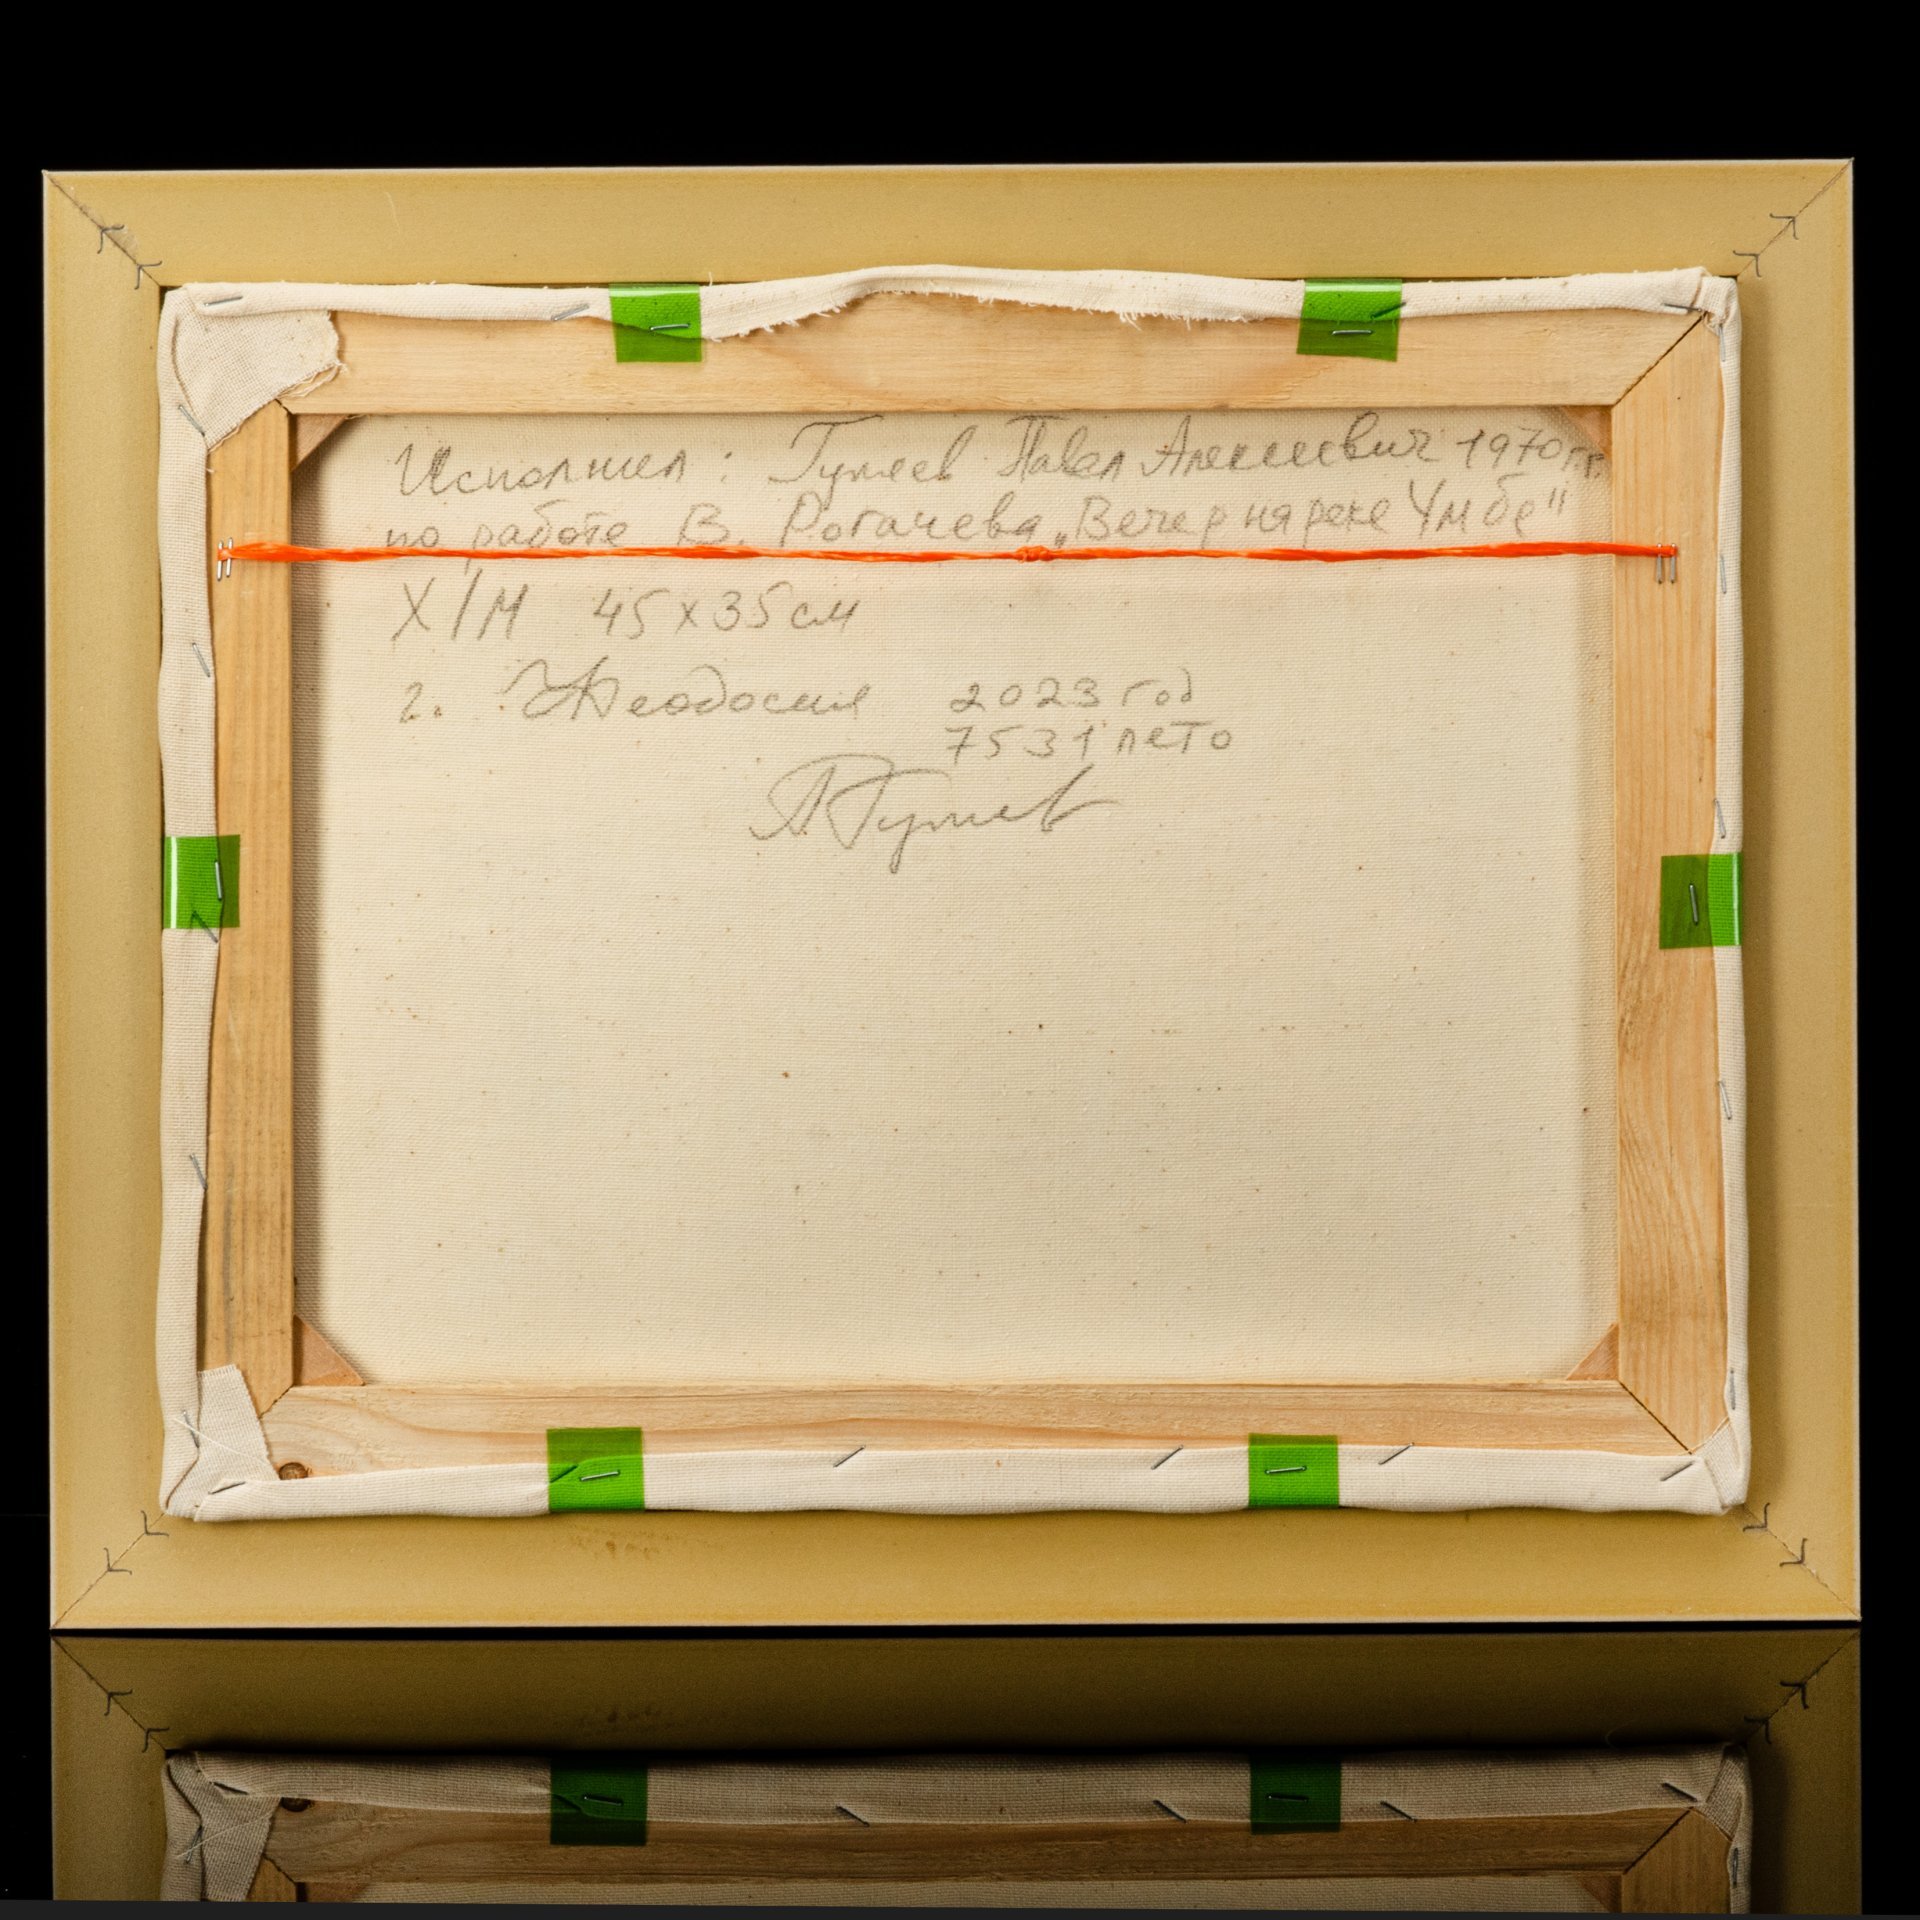 Исполнил: Гуляев Павел Алексеевич 1970 г.р.
по работе В. Рогачева „Вечер на реке Умбе"
Х/М 45х35см
г. Феодосия 2023 год
7531 лето